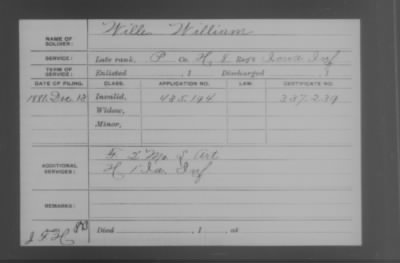 NAME OF SOLDIER: Wille William
SERVICE: Late rank, P Co. H, 8 Reg't Iowa Inf
TERM OF SERVICE: Enlisted , 1 Discharged , 1
DATE OF FILING. CLASS. APPLICATION NO. LAW. CERTIFICATE NO.
1881, Dec. 13 Invalid, 435.194 337.239
Widow,
Minor,
ADDITIONAL SERVICES: F 2 Mo. L Art
H 1 Ia. Inf
REMARKS:
Died , 1 , at